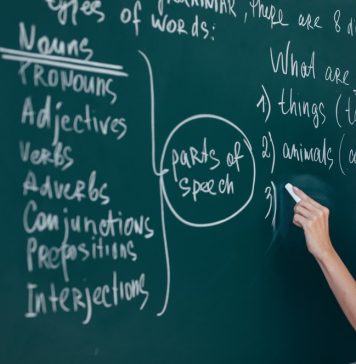 types of words:
GRAMMAR, there are 8
Nouns
PRONOUNS
Adjectives
Verbs
Adverbs
Conjunctions
Prepositions
Interjections
parts of
speech
What are
1) things (
2) animals (
3)